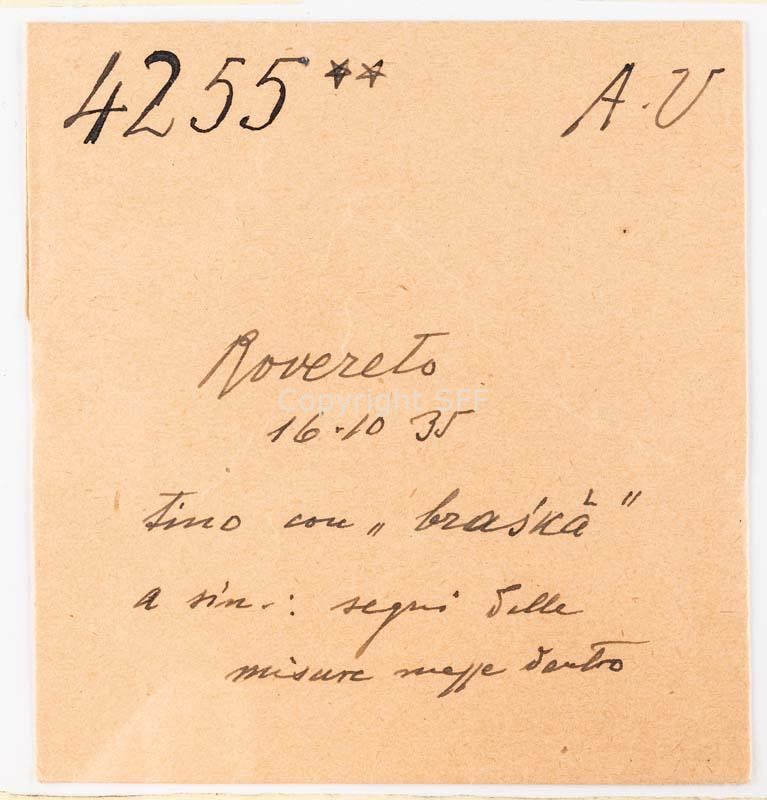 4255 ** A.V
Rovereto
Copyright SFF
16.10 35
tino con „braśkà"
a sin.: segni delle
misure messe dentro